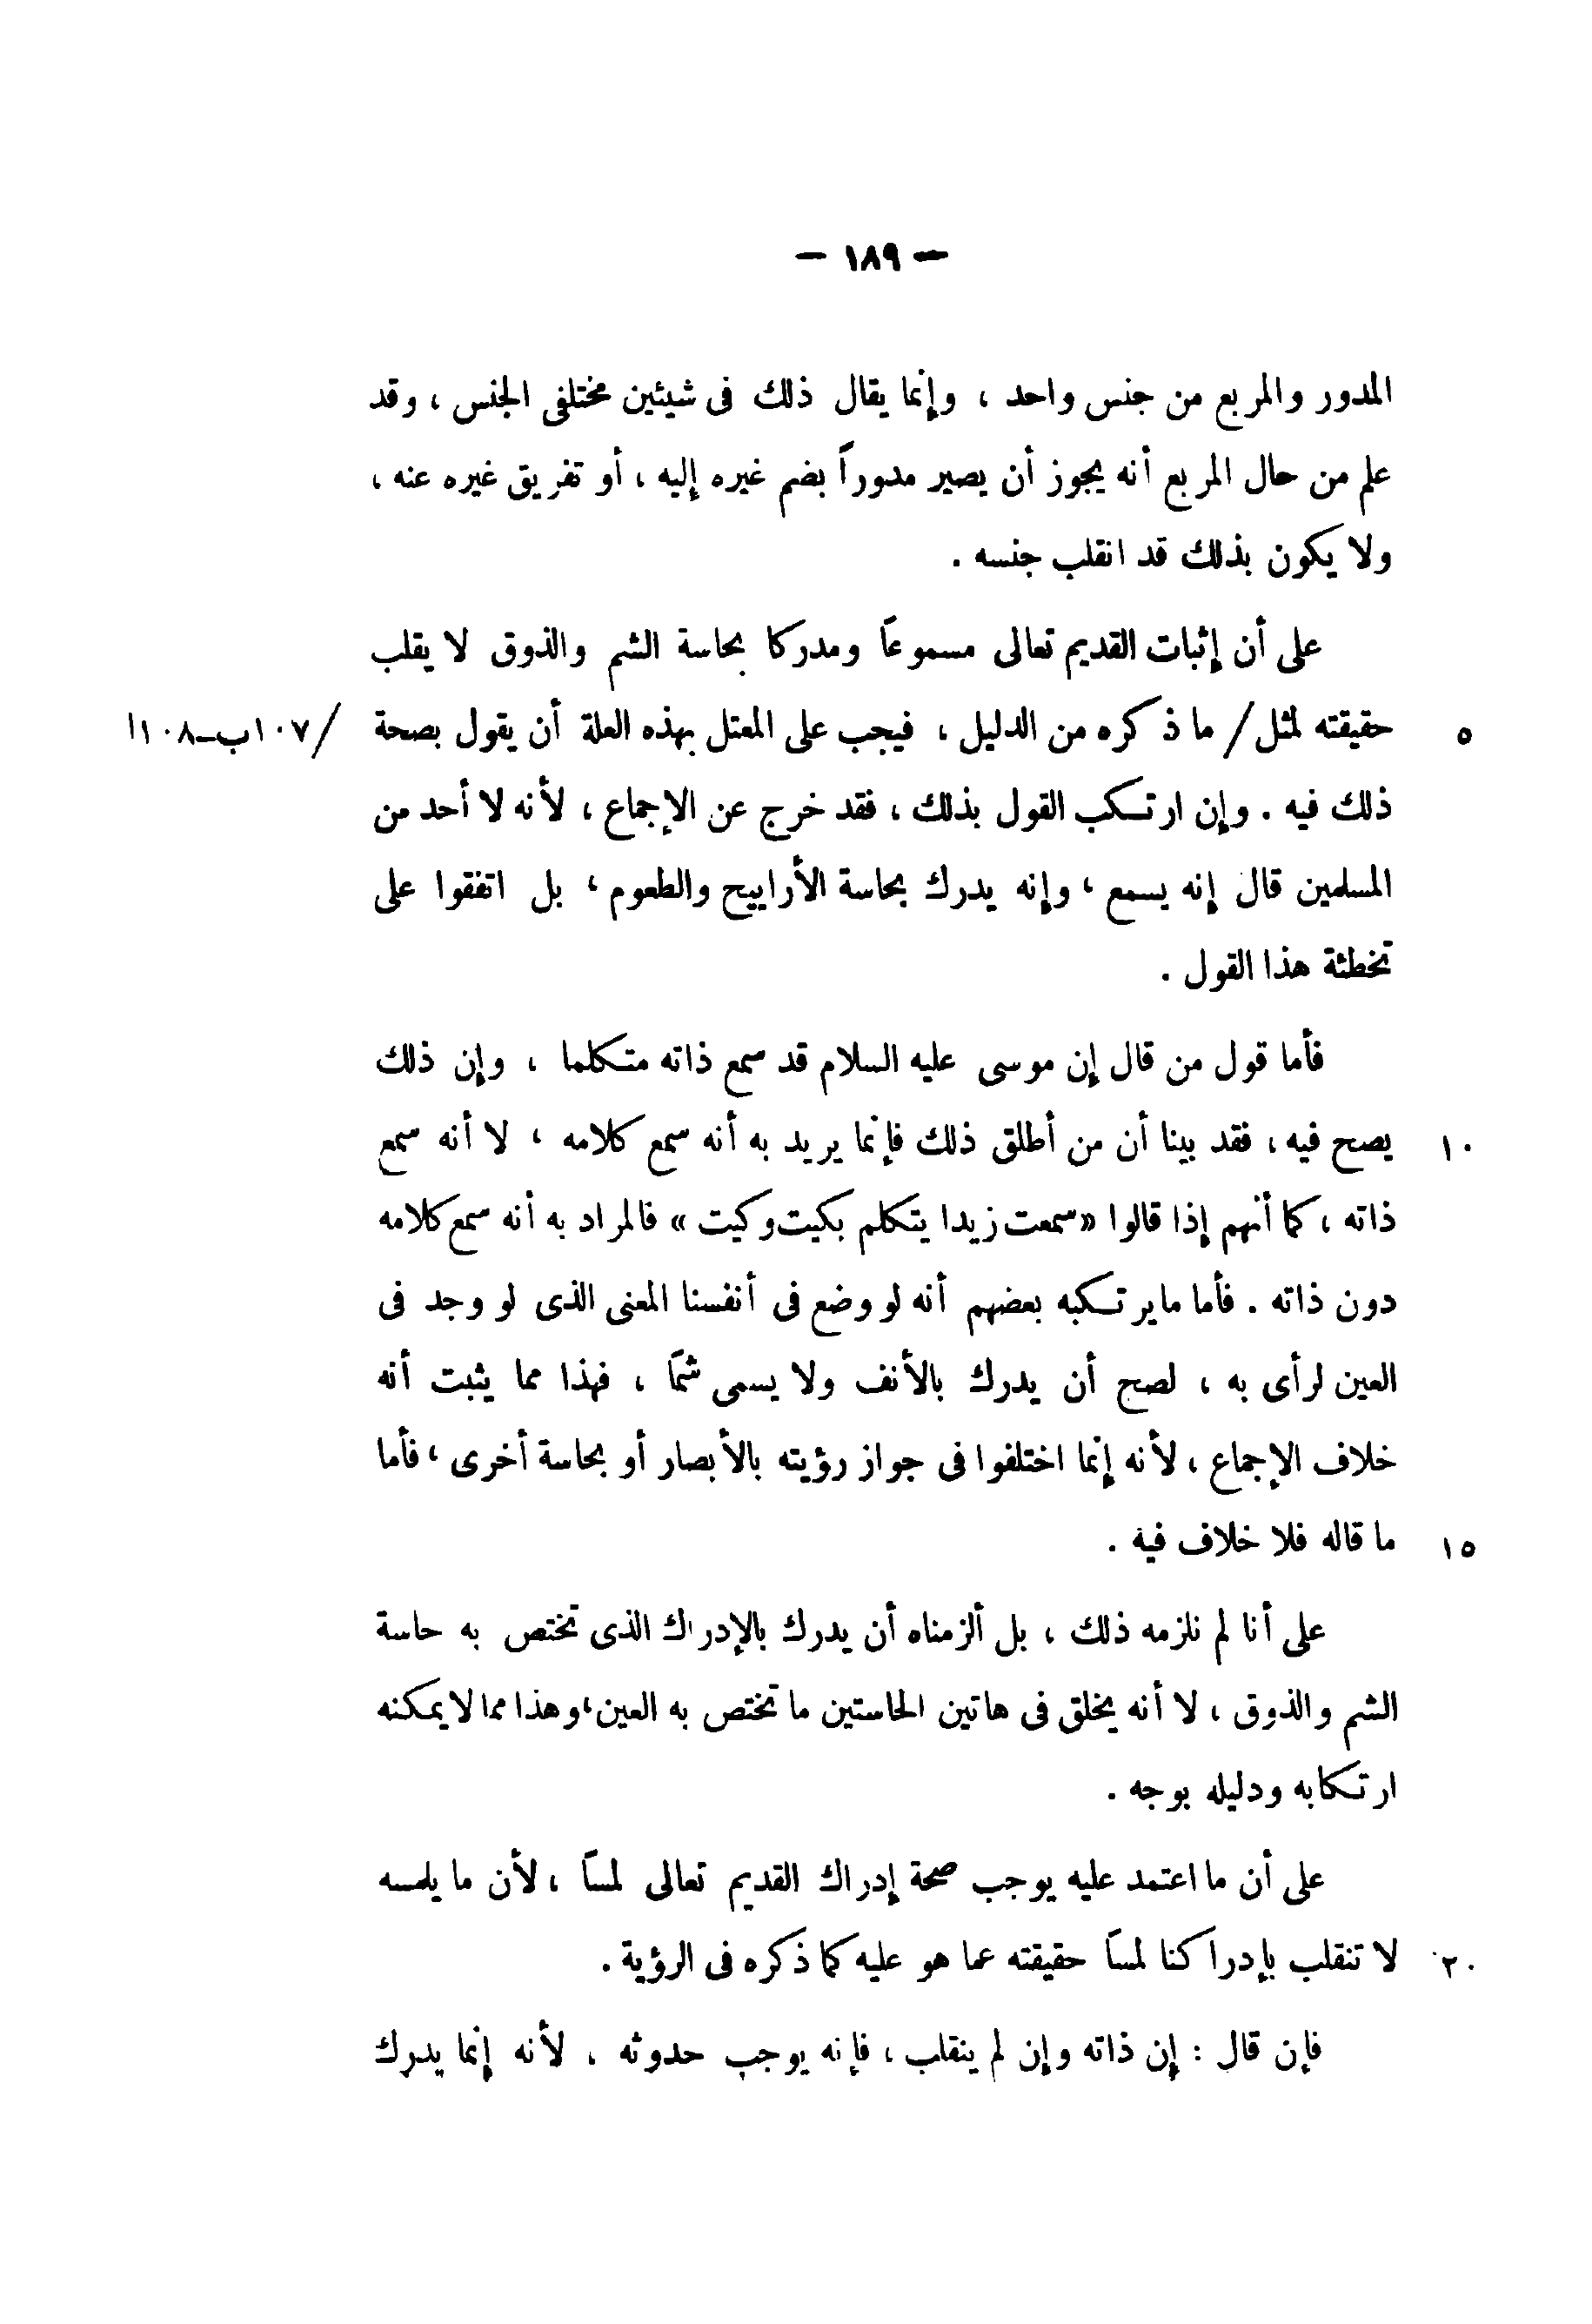 — ١٨٩ —
المدور والمربع من جنس واحد ، وإنما يقال ذلك فى شيئين مختلفى الجنس ، وقد
علم من حال المربع أنه يجوز أن يصير مدوراً بضم غيره إليه ، أو تفريق غيره عنه ،
ولا يكون بذلك قد انقلب جنسه .
على أن إثبات القديم تعالى مسموعًا ومدركا بحاسة الشم والذوق لا يقلب
٥ حقيقته لمثل / ما ذكره من الدليل ، فيجب على المعتل بهذه العلة أن يقول بصحة /١٠٧ب—١٠٨ا
ذلك فيه . وإن ارتكب القول بذلك ، فقد خرج عن الإجماع ، لأنه لا أحد من
المسلمين قال إنه يسمع ، وإنه يدرك بحاسة الأراييح والطعوم ، بل اتفقوا على
تخطئة هذا القول .
فأما قول من قال إن موسى عليه السلام قد سمع ذاته متكلما ، وإن ذلك
١٠ يصح فيه ، فقد بينا أن من أطلق ذلك فإنما يريد به أنه سمع كلامه ، لا أنه سمع
ذاته ، كما أنهم إذا قالوا «سمعت زيدا يتكلم بكيت وكيت» فالمراد به أنه سمع كلامه
دون ذاته . فأما ما يرتكبه بعضهم أنه لو وضع فى أنفسنا المعنى الذى لو وجد فى
العين لرأى به ، لصح أن يدرك بالأنف ولا يسمى شمًا ، فهذا مما يثبت أنه
خلاف الإجماع ، لأنه إنما اختلفوا فى جواز رؤيته بالأبصار أو بحاسة أخرى ، فأما
١٥ ما قاله فلا خلاف فيه .
على أنا لم نلزمه ذلك ، بل ألزمناه أن يدرك بالإدراك الذى تختص به حاسة
الشم والذوق ، لا أنه يخلق فى هاتين الحاستين ما تختص به العين ، وهذا مما لا يمكنه
ارتكابه ودليله بوجه .
على أن ما اعتمد عليه يوجب صحة إدراك القديم تعالى لمسًا ، لأن ما يلمسه
٢٠ لا تنقلب بإدراكنا لمسًا حقيقته عما هو عليه كما ذكره فى الرؤية .
فإن قال : إن ذاته وإن لم ينقلب ، فإنه يوجب حدوثه ، لأنه إنما يدرك